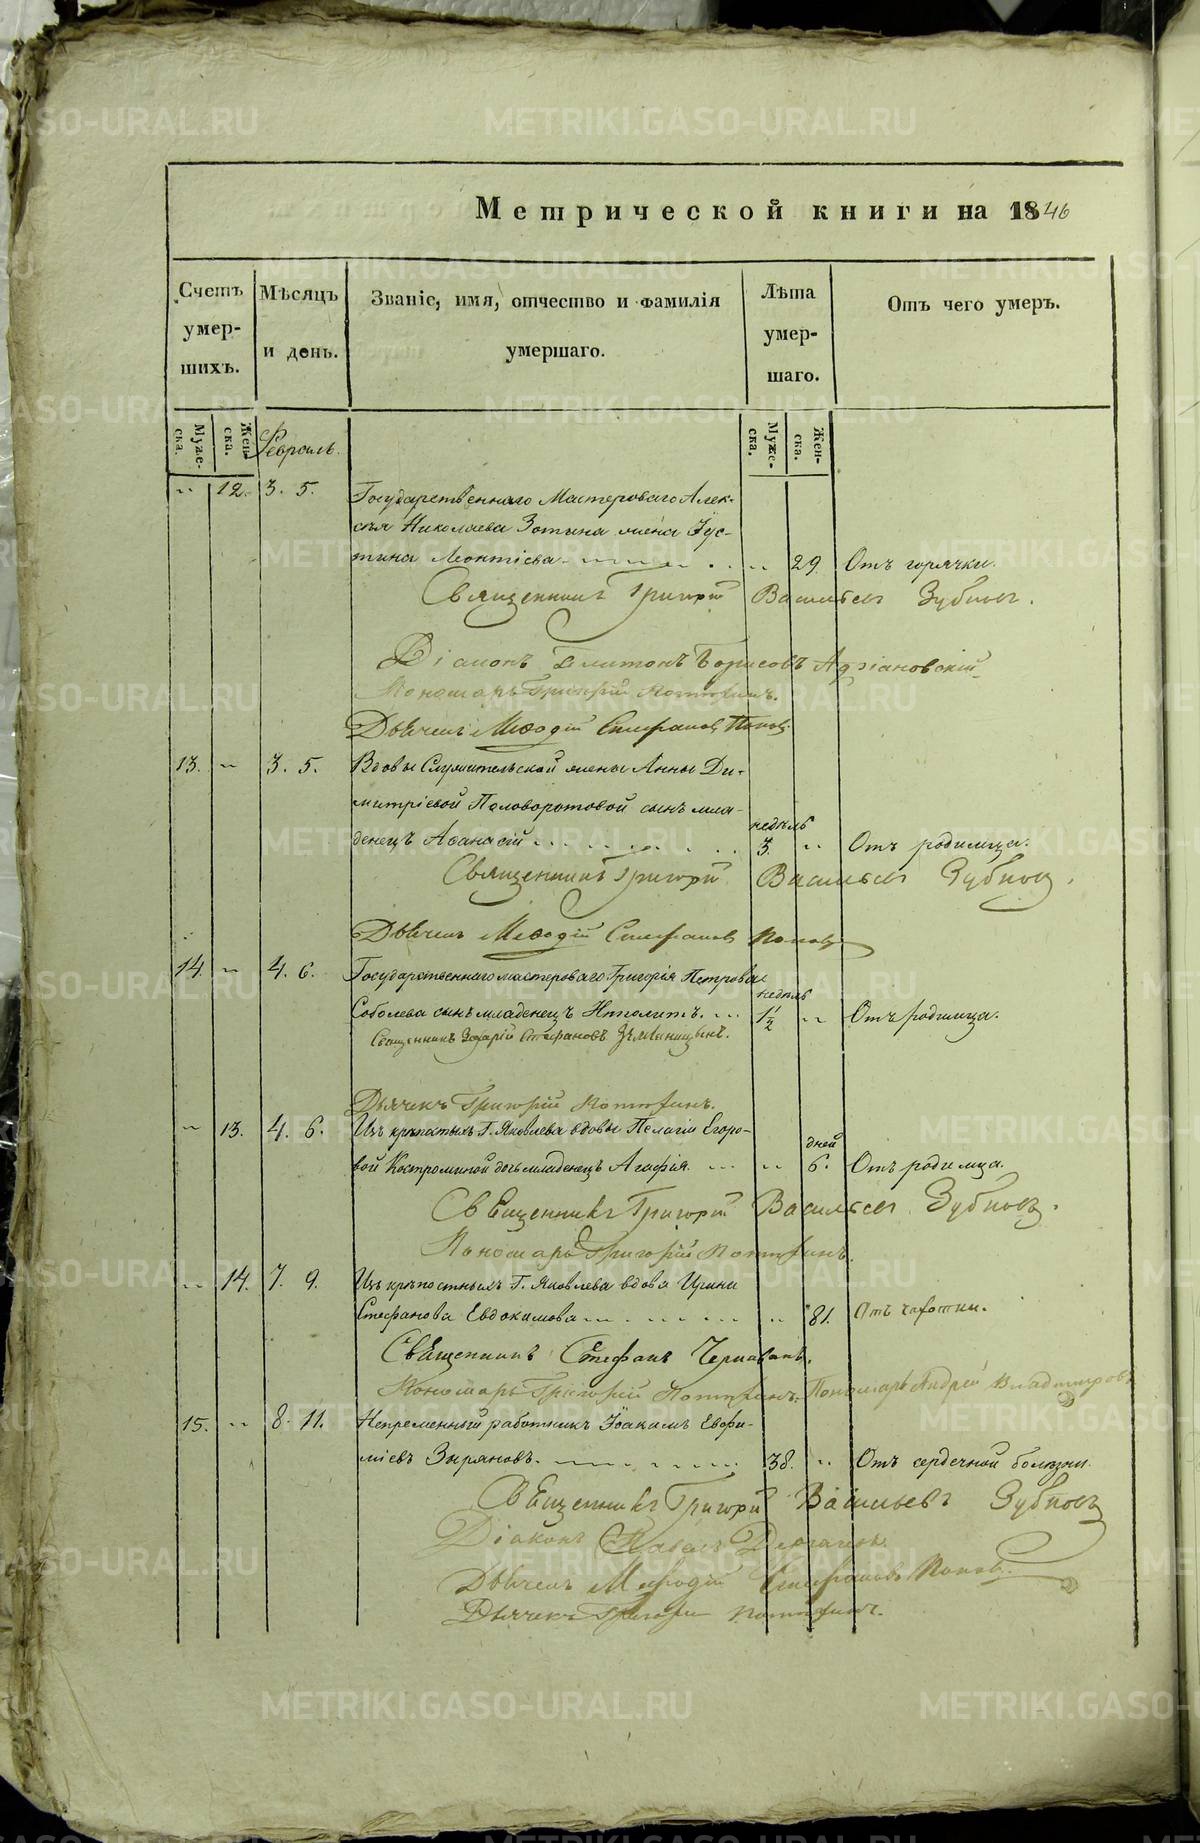 Метрической книги на 1846
Счетъ умер-шихъ.
Мѣсяцъ и день.
Званіе, имя, отчество и фамилія умершаго.
Лѣта умер-шаго.
Отъ чего умеръ.
Муже-ска.
Жен-ска.
Февраль.
Муже-ска.
Жен-ска.
" 12. 3. 5. Государственнаго Мастероваго Алек-
сѣя Николаева Зотина жена Іус-
тина Леонтіева " 29 Отъ горячки.
Священникъ Григорій Васильевъ Зубковъ.
Діаконъ Платонъ Борисовъ Адріановскій
Пономарь Григорій
Дьячекъ Меѳодій Стефановъ Поповъ
13. " 3. 5. Вдовы Служительской жены Анны Ди-
митріевой Половоротовой сынъ мла-
недѣль
денецъ Аѳанасій 3. " Отъ родимца.
Священникъ Григорій Васильевъ Зубковъ.
Дьячекъ Меѳодій Стефановъ Поповъ
14. " 4. 6. Государственнаго мастероваго Григорія Петрова
недѣль
Соболева сынъ младенецъ Ипполитъ. 1½ " Отъ родимца.
Священникъ Захарій Стефановъ
Дьячекъ Григорій
" 13. 4. 6. Изъ крѣпостыхъ Г. Яковлева вдовы Пелагіи Егоро-
дней
вой Костроминой дочь младенецъ Агафія. " 6. Отъ родимца.
Священникъ Григорій Васильевъ Зубковъ.
Пономарь Григорій
" 14. 7. 9. Изъ крѣпостныхъ Г. Яковлева вдова Ирина
Стефанова Евдокимова " 81. Отъ чахотки.
Священникъ Стефанъ Чернавинъ.
Пономарь Григорій Пономарь Андрей Владимировъ
15. " 8. 11. Непременный работникъ Іоакимъ Евфи-
міевъ Зыряновъ. 38. " Отъ сердечной болѣзни.
Священникъ Григорій Васильевъ Зубковъ
Діаконъ Павелъ
Дьячекъ Меѳодій Стефановъ Поповъ.
Дьячекъ Григорій
METRIKI.GASO-URAL.RU